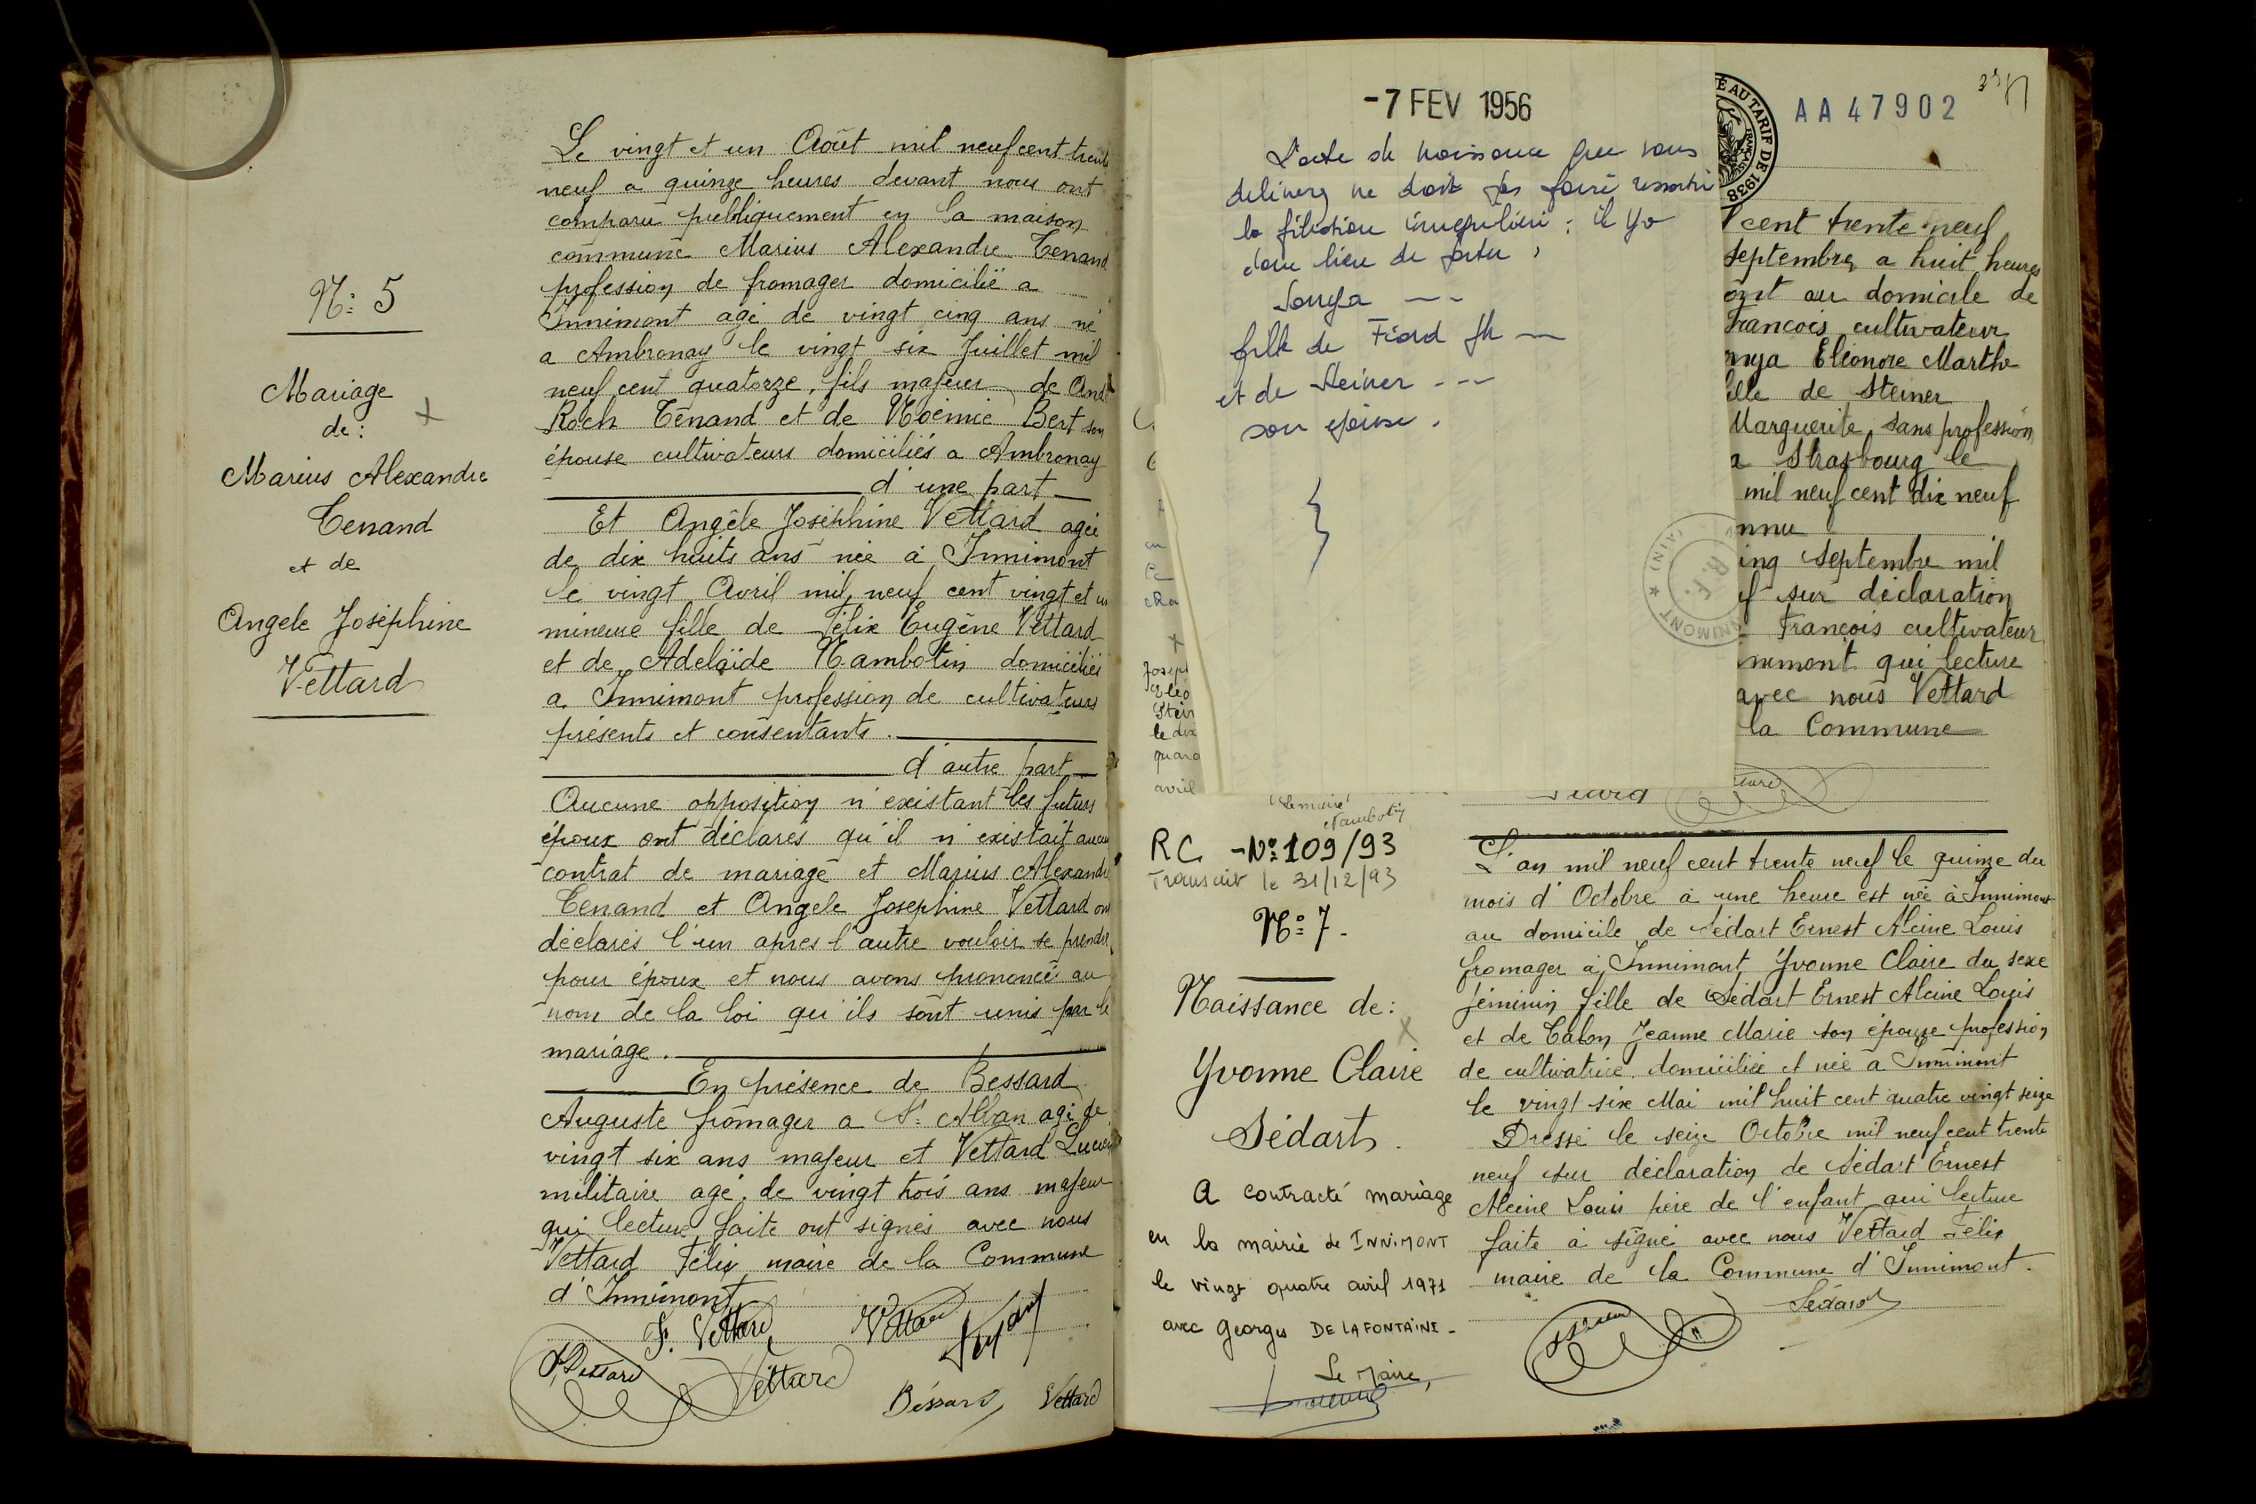 N: 5
Mariage
de :
Marius Alexandre
Tenand
et de
Angele Joséphine
Vettard
Le vingt et un Août mil neuf cent trente
neuf a quinze heures devant nous ont
comparu publiquement en la maison
commune Marius Alexandre Tenand
profession de fromager domicilié a
Innimont agé de vingt cinq ans né
a Ambronay le vingt six Juillet mil
neuf cent quatorze, fils majeur de
Roch Tenand et de Noémie Bert son
épouse cultivateurs domiciliés a Ambronay
d'une part
Et Angèle Joséphine Vettard agée
de dix huits ans née à Innimont
le vingt Avril mil neuf cent vingt et un
mineure fille de Félix Eugène Vettard
et de Adelaïde Nambotin domiciliés
a Innimont profession de cultivateurs
présents et consentants.
d'autre part
Aucune opposition n'existant les futurs
époux ont déclarés qu'il n'existait aucun
contrat de mariage et Marius Alexandre
Tenand et Angele Josephine Vettard ont
déclarés l'un apres l'autre vouloir se prendre
pour époux et nous avons prononcé au
nom de la loi qu'ils sont unis par le
mariage.
En présence de Bessard
Auguste fromager a St Alban agé de
vingt six ans majeur et Vettard Lucien
militaire agé de vingt trois ans majeur
qui lecture faite ont signés avec nous
Vettard Félix maire de la Commune
d'Innimont
F. Vettard
Vettard
Bessard Vettard
-7 FEV 1956
L'acte de naissance que vous
delivrez ne doit pas faire ressortir
la filiation irreguliere : il y a
donc lieu de porter,
Sonya ---
fille de Fiard
et de Steiner ---
son épouse.
AA 47902
É AU TARIF DE 1938
cent trente neuf
septembre a huit heures
au domicile de
Francois cultivateur
nya Eléonore Marthe
lle de Steiner
Marguerite, sans profession
a Strasbourg le
mil neuf cent dix neuf
nnu
inq septembre mil
f sur déclaration
François cultivateur
nimont qui lecture
avec nous Vettard
la Commune
R.F.
NIMONT ★ (AIN)
Joseph
Eléo
Stein
le dix
quara
avril
Nambotin
RC - No: 109/93
Transcrit le 31/12/93
N: 7 -
Naissance de :
Yvonne Claire
Sédart.
A contracté mariage
en la mairie de INNIMONT
le vingt quatre avril 1971
avec Georges DE LA FONTAINE -
Le Maire,
L'an mil neuf cent trente neuf le quinze du
mois d'Octobre à une heure est née à Innimont
au domicile de Sédart Ernest Alcine Louis
fromager à Innimont Yvonne Claire du sexe
féminin fille de Sédart Ernest Alcine Louis
et de Jeanne Marie son épouse profession
de cultivatrice domiciliée et née a Innimont
le vingt six Mai mil huit cent quatre vingt seize
Dressé le seize Octobre mil neuf cent trente
neuf sur déclaration de Sédart Ernest
Alcine Louis père de l'enfant qui lecture
faite à signé avec nous Vettard Félix
maire de la Commune d'Innimont.
Sédart